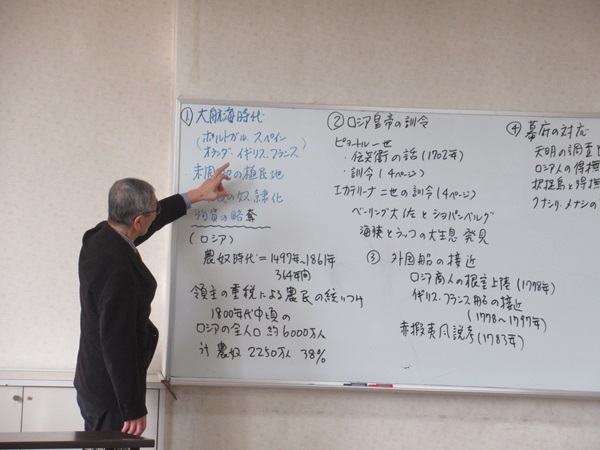 ① 大航海時代
(ポルトガル. スペイン
オランダ. イギリス. フランス)
未開地の植民地
の奴隷化
物資の略奪
(ロシア)
農奴時代=1497年~1861年
364年間
領主の重税による農民の絞りつけ
1800年代中頃の
ロシアの全人口 約6000万人
計 農奴 2250万人 38%
② ロシア皇帝の訓令
ピョートル一世
・伝兵衛の話 (1702年)
・訓令 (4ページ)
エカテリーナ二世の訓令 (4ページ)
ベーリング大佐とシュパンベルグ
海猿とラッコの大生息 発見
③ 外国船の接近
ロシア商人の根室上陸 (1778年)
イギリス. フランス船の接近
(1778~1797年)
赤蝦夷風説考 (1783年)
④ 幕府の対応
天明の調査
ロシア人の得撫
択捉島と得撫
クナシリ. メナシの